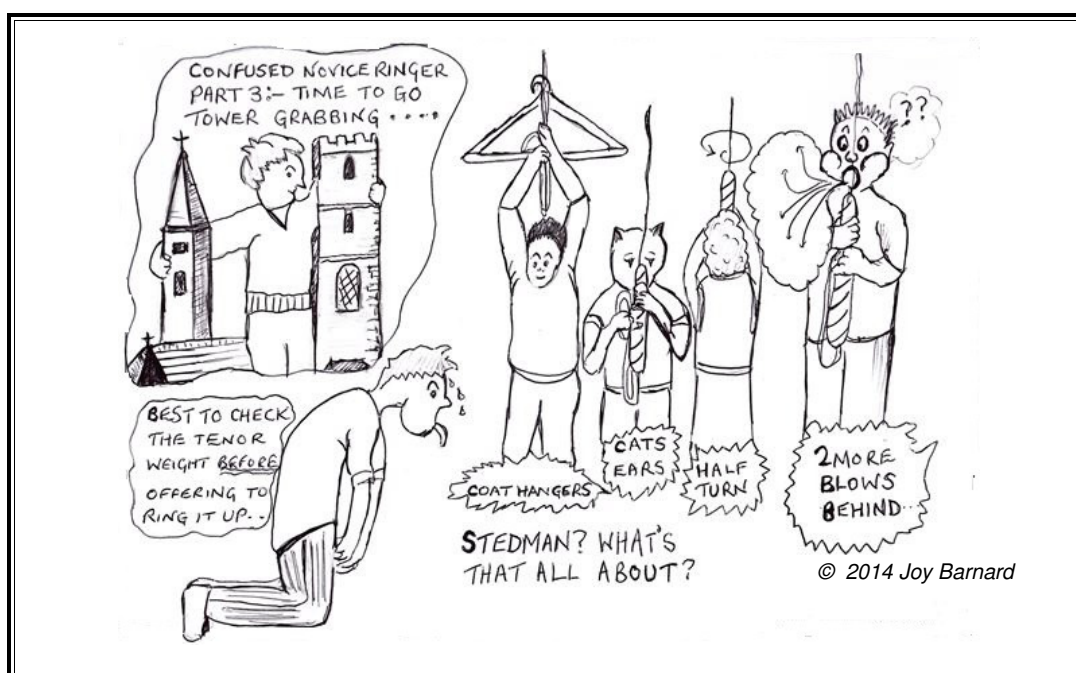 CONFUSED NOVICE RINGER
PART 3:- TIME TO GO
TOWER GRABBING ....
??
BEST TO CHECK
THE TENOR
WEIGHT BEFORE
OFFERING TO
RING IT UP..
COAT HANGERS
CATS
EARS
HALF
TURN
2 MORE
BLOWS
BEHIND...
STEDMAN? WHAT'S
THAT ALL ABOUT?
© 2014 Joy Barnard